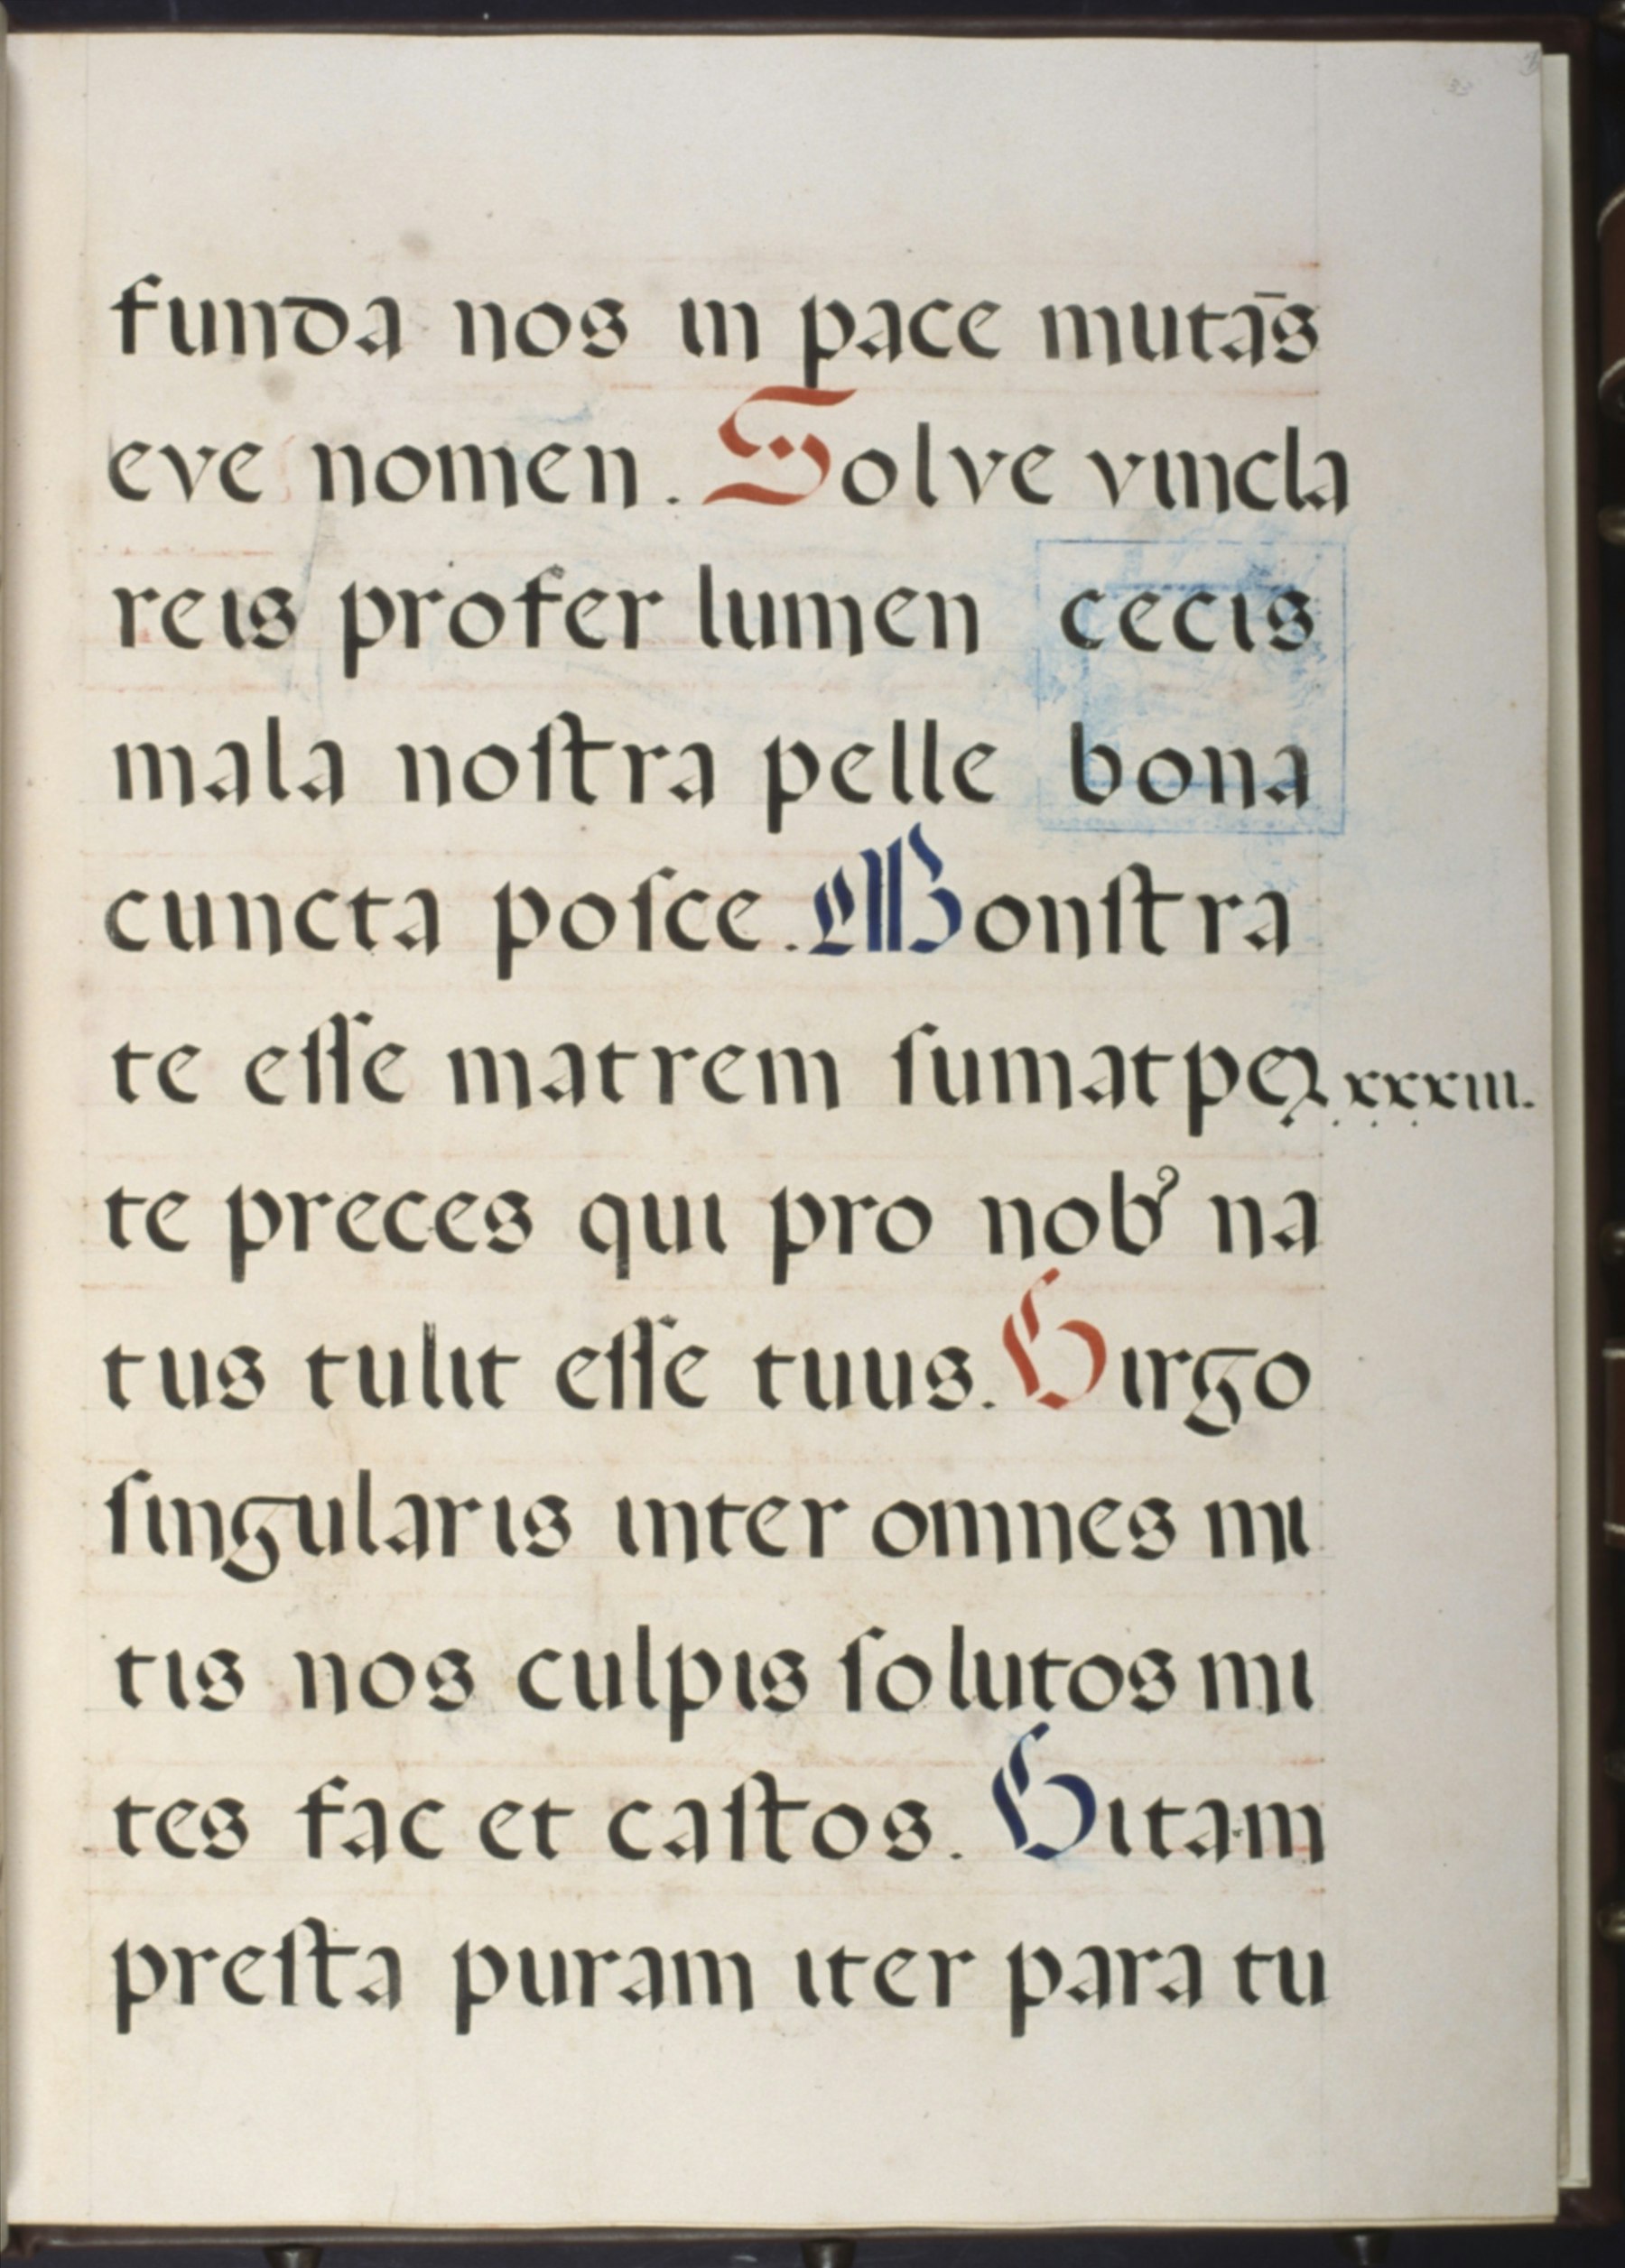 funda nos in pace mutās
eve nomen. Solve vincla
reis profer lumen cecis
mala noſtra pelle bona
cuncta poſce. Monſtra
te eſſe matrem ſumat peꝛ
xxxiii.
te preces qui pro nob᾽ na
tus tulit eſſe tuus. Virgo
ſingularis inter omnes mi
tis nos culpis ſolutos mi
tes fac et caſtos. Vitam
preſta puram iter para tu